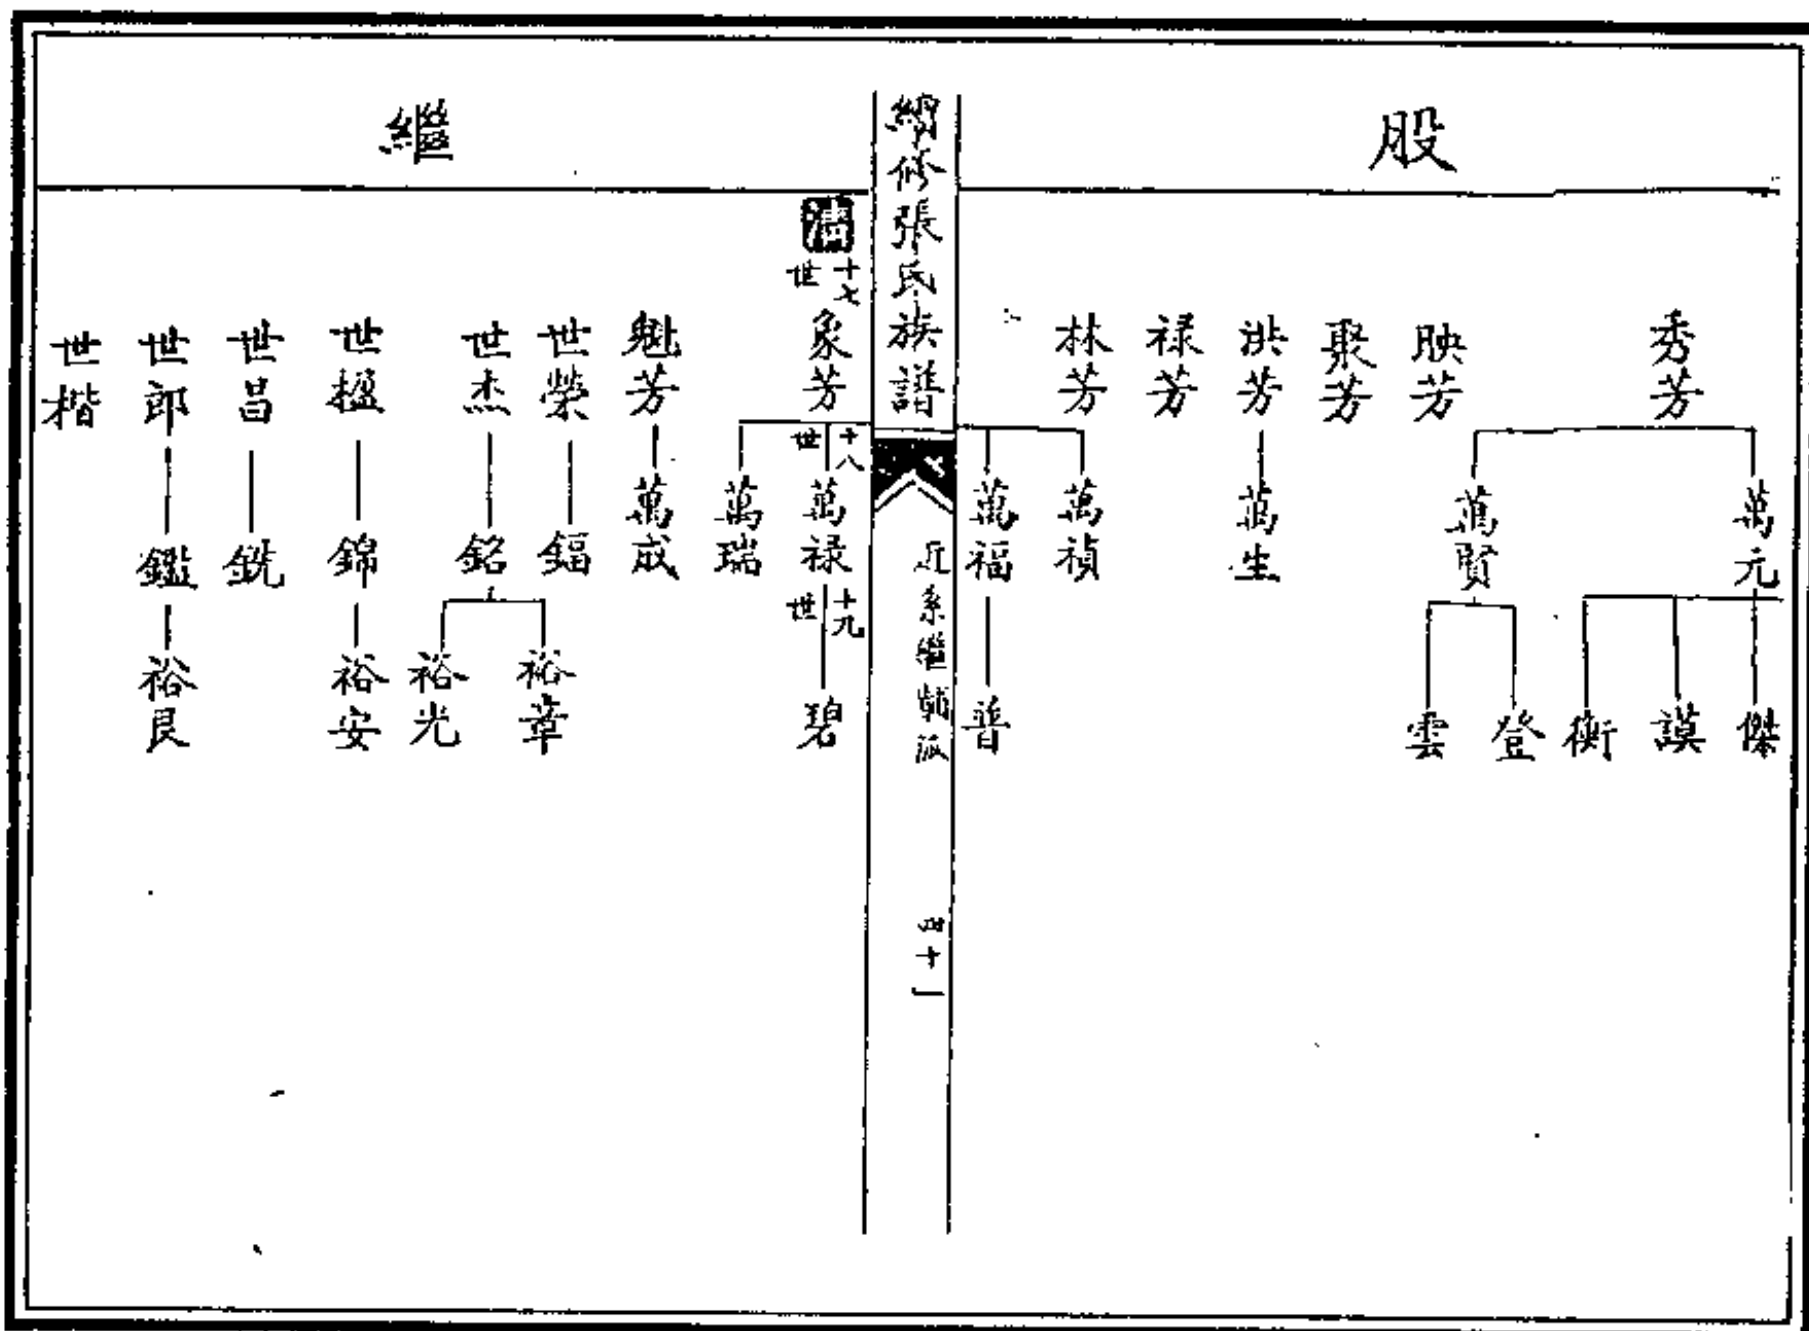 股
秀芳
萬元
傑
謨
衡
萬賢
登
雲
映芳
聚芳
洪芳
萬生
禄芳
林芳
萬禎
萬福
普
續修張氏族譜
近系繼輔派
清
十七世
象芳
十八世
萬禄
十九世
碧
萬瑞
繼
魁芳
萬成
世榮
鍢
世杰
銘
裕章
裕光
世楹
錦
裕安
世昌
銑
世郎
鑑
裕良
世楷